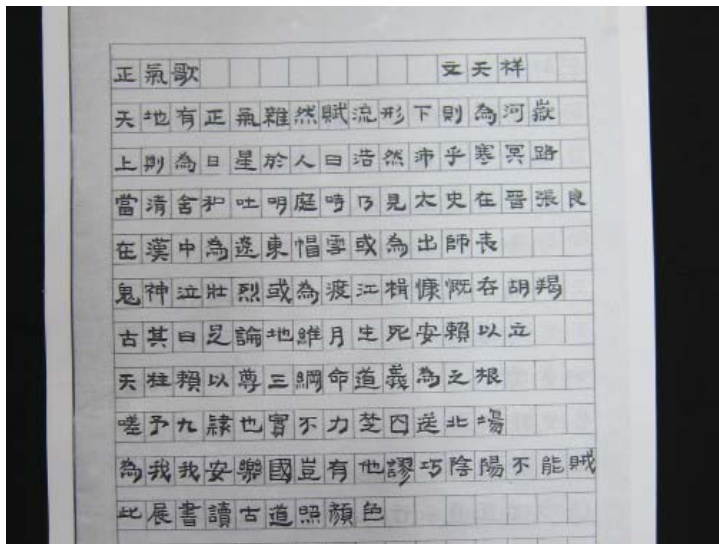 正氣歌 文天祥
天地有正氣雜然賦流形下則為河嶽
上則為日星於人曰浩然沛乎寒冥路
當清舍和吐明庭時乃見太史在晉張良
在漢中為遼東帽雪或為出師表
鬼神泣壯烈或為渡江楫慷慨吞胡羯
古其日是論地維月生死安賴以立
天柱賴以尊三綱命道義為之根
嗟予九隸也實不力楚囚送北場
為我我安樂國豈有他謬巧陰陽不能賊
此展書讀古道照顏色